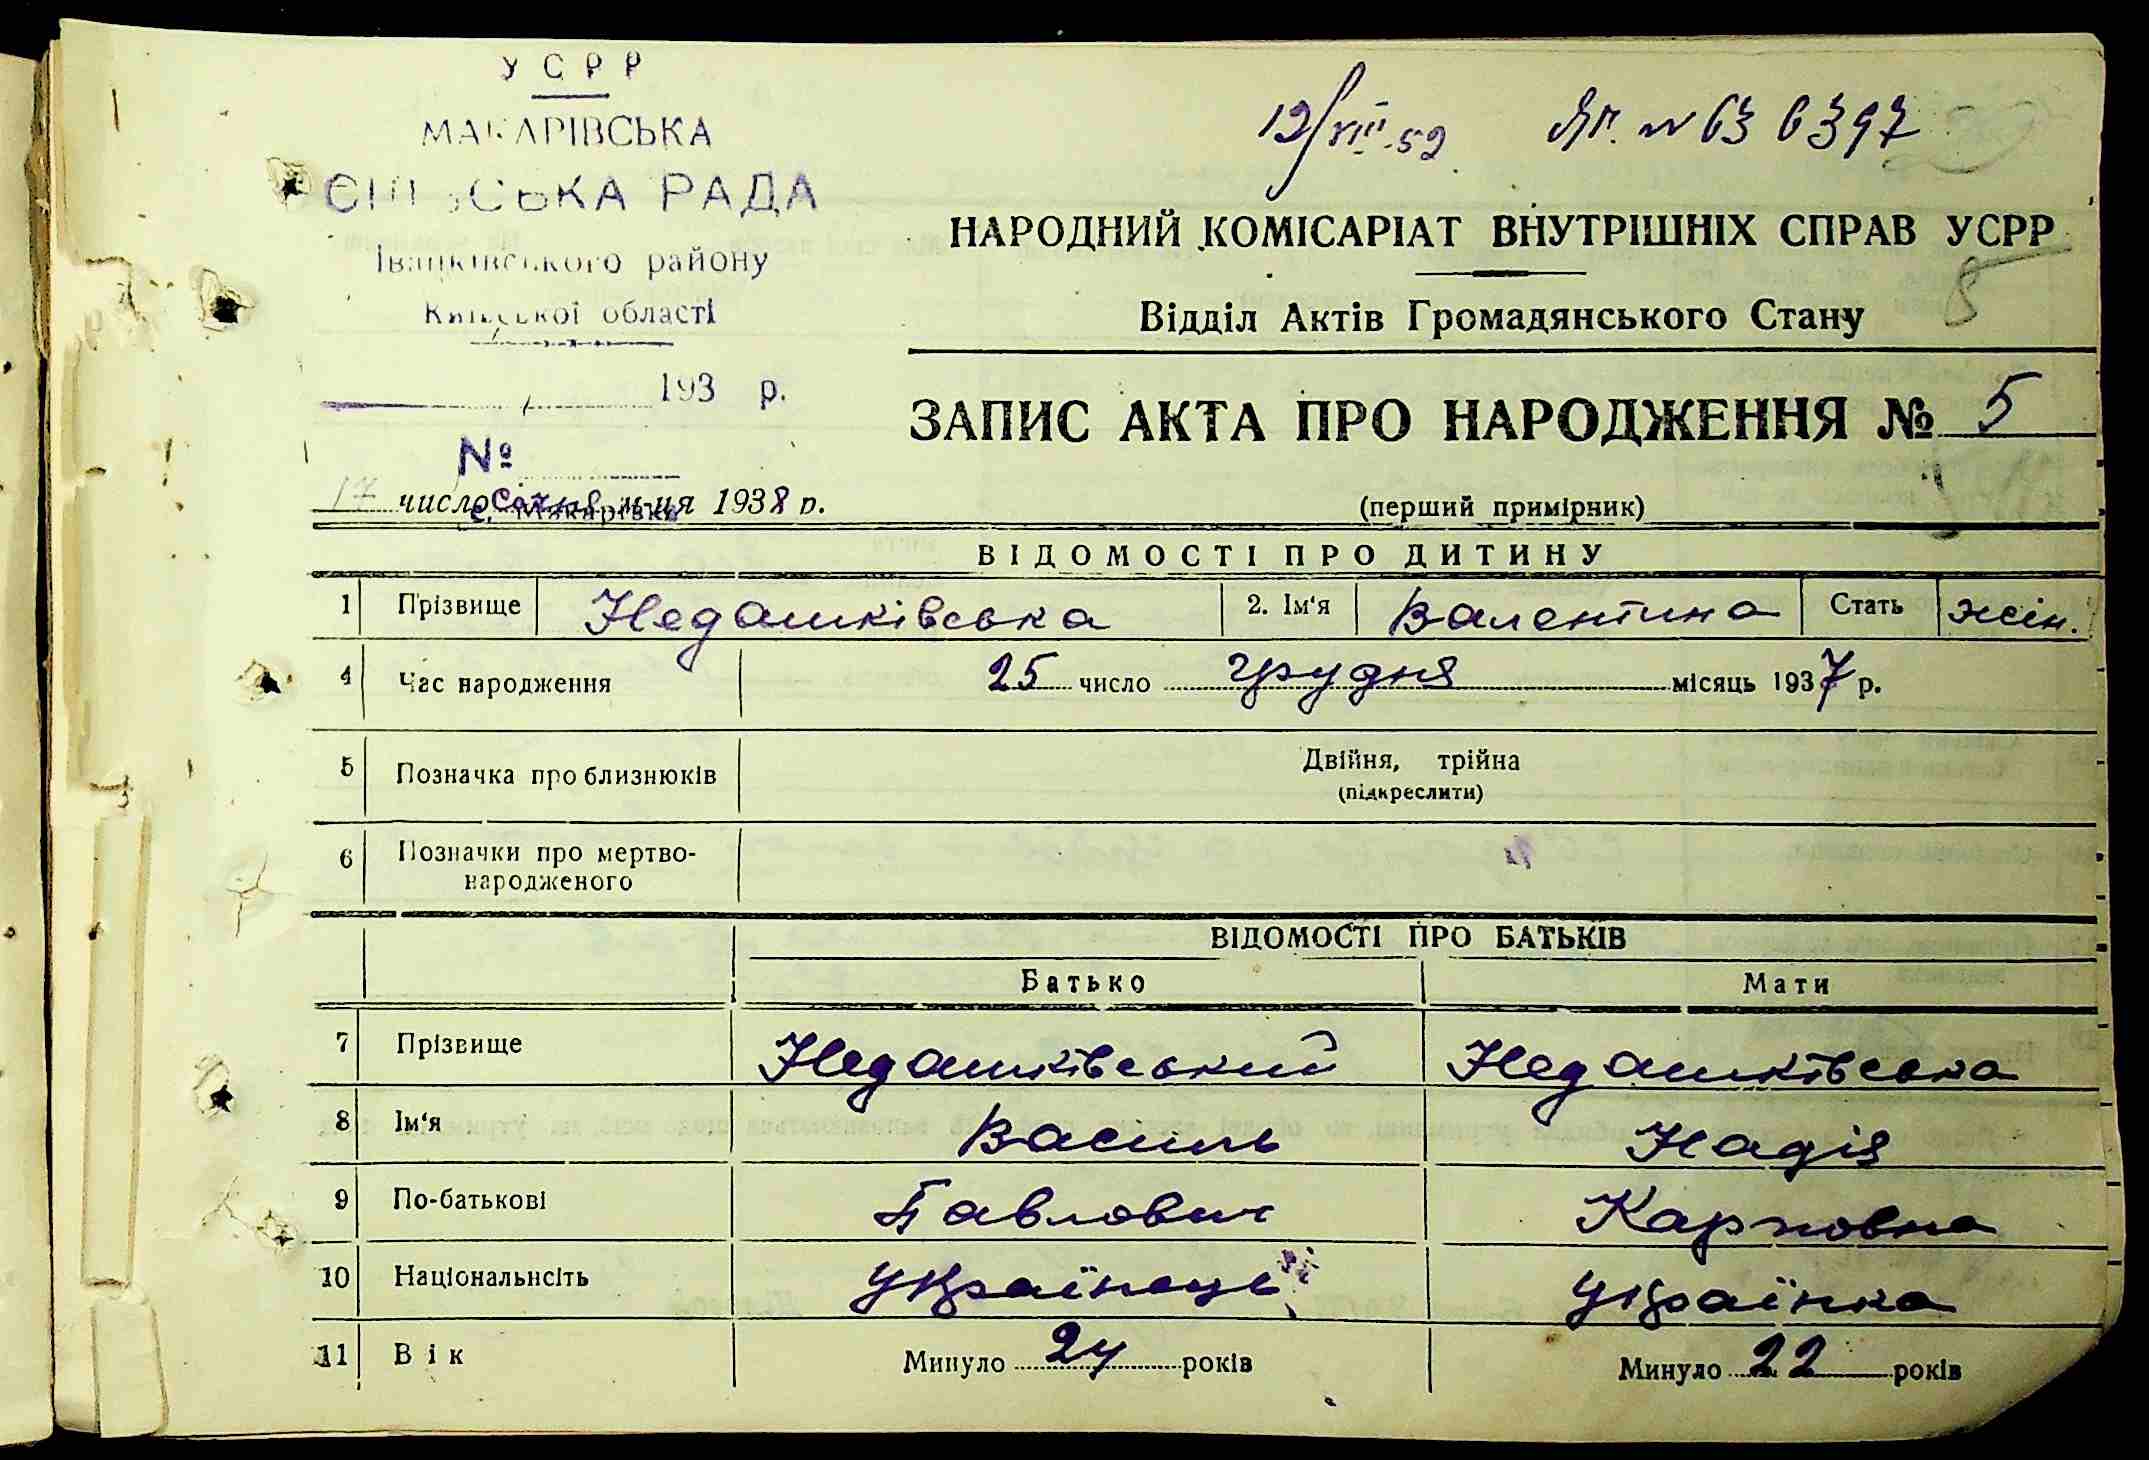 УСРР
МАКАРІВСЬКА
РАДА
Іванківського району
Київської області
193 р.
№
с. Макарівка
17 число січня м-ця 1938 р.
12/VIII-52 № 636397
НАРОДНИЙ КОМІСАРІАТ ВНУТРІШНІХ СПРАВ УСРР
8
Відділ Актів Громадянського Стану
ЗАПИС АКТА ПРО НАРОДЖЕННЯ № 5
(перший примірник)
ВІДОМОСТІ ПРО ДИТИНУ
1 Прізвище Недашківська 2. Ім'я Валентина Стать жін.
4 Час народження 25 число грудня місяць 1937 р.
5 Позначка про близнюків Двійня, трійна
(підкреслити)
6 Позначки про мертво-
народженого
ВІДОМОСТІ ПРО БАТЬКІВ
Батько Мати
7 Прізвище Недашківський Недашківська
8 Ім'я Василь Надія
9 По-батькові Павлович Карповна
10 Національнсіть українець українка
11 Вік Минуло 24 років Минуло 22 років